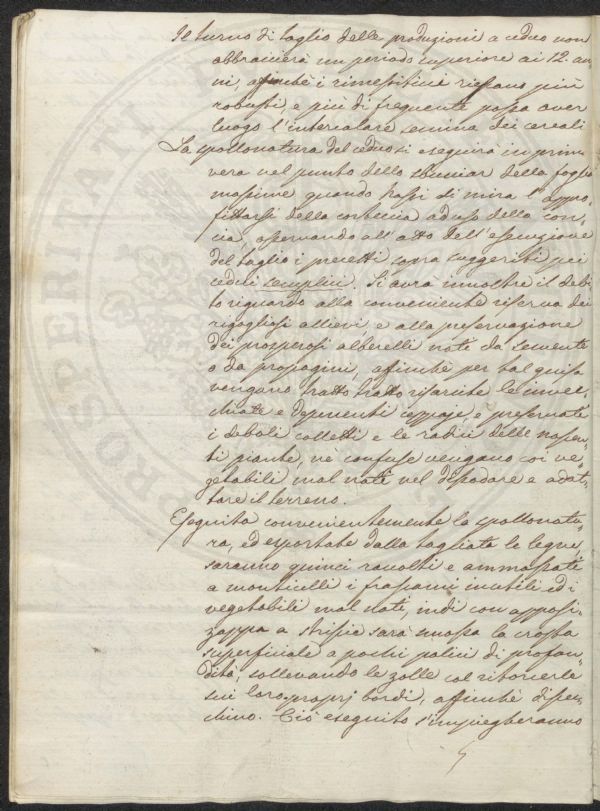 Il turno di taglio delle produzioni a ceduo non
abbraccierà un periodo superiore ai 12. an-
ni, affinchè i rimettitivi riescano più
robusti, e più di frequente possa aver
luogo l'intercalare semina dei cereali
La spollonatura del ceduo si eseguirà in prima
vera nel punto dello sbucciar della foglia
massime quando trassi di mira l'appro-
fittarsi della corteccia ad uso della con-
cia, osservando all'atto dell'esecuzione
del taglio i precetti sopra suggeriti pei
cedui semplici. Si avrà inoltre il debi-
to riguardo alla conveniente riserva dei
rigogliosi allievi, e alla preservazione
dei prosperosi alberelli nati da semente
o da propagini, affinchè per tal guisa
vengano tratto tratto risarcite le invec-
chiate e deperienti ceppaje e preservati
i deboli colletti e le radici delle nascen-
ti piante, nè confuse vengano coi ve-
getabili mal nati nel dispodare e adat-
tare il terreno.
Eseguita convenientemente la spollonatu-
ra, ed esportate dalla tagliata le legne,
saranno quinci raccolti e ammassati
a monticelli i frassami inutili ed i
vegetabili mal nati, indi con apposi.
zappa a striscie sarà smossa la crosta
superficiale a pochi polici di profon-
dità, sollevando le zolle col ritorcerle
sui loro proprj bordi, affinchè dissec-
chino. Ciò eseguito s'impiegheranno